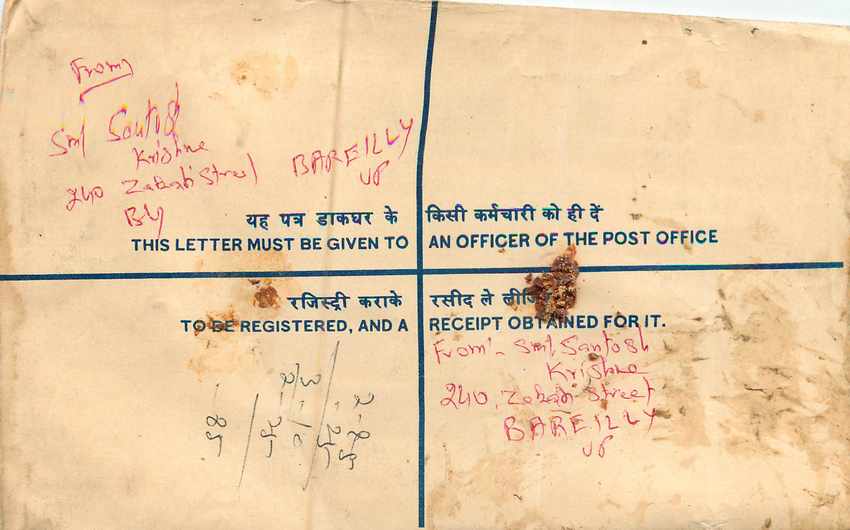 From
Smt Santosh
Krishna
240 Zakati Street BAREILLY
Bly UP
यह पत्र डाकघर के किसी कर्मचारी को ही दें
THIS LETTER MUST BE GIVEN TO AN OFFICER OF THE POST OFFICE
रजिस्ट्री कराके रसीद ले
TO BE REGISTERED, AND A RECEIPT OBTAINED FOR IT.
From:- Smt Santosh
Krishna
240, Zakati Street
BAREILLY
UP